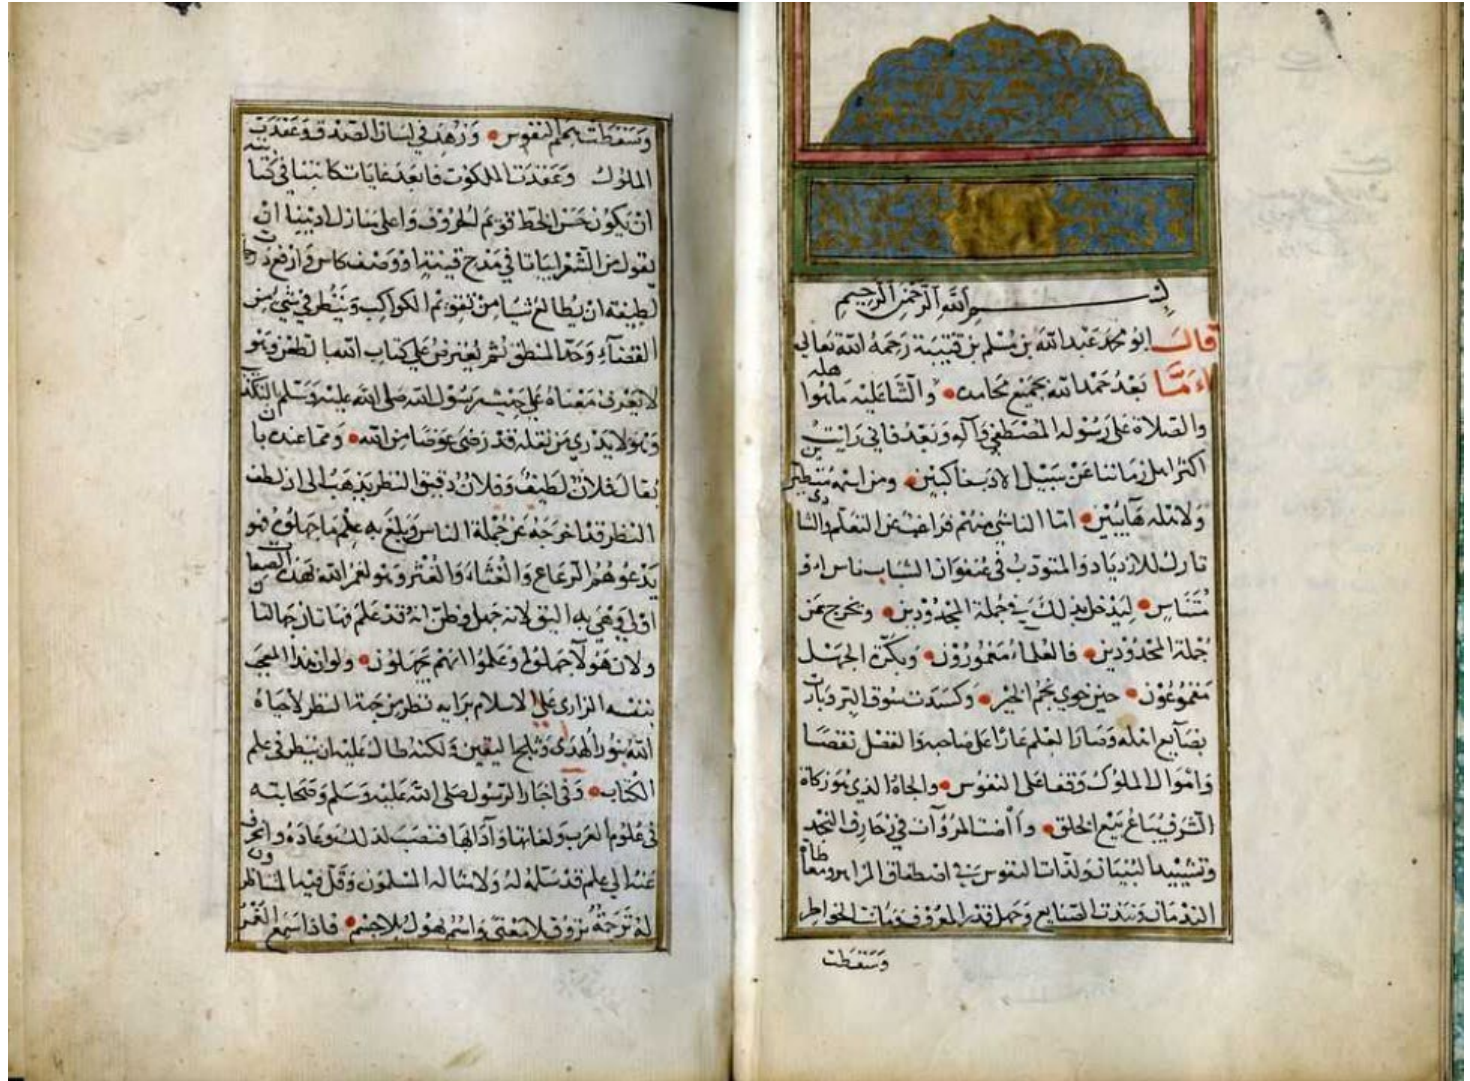 بسم الله الرحمن الرحيم
قال ابو محمد عبد الله بن مسلم بن قتيبة رحمه الله تعالى
اما بعد حمد الله بجميع محامده والثنا عليه بما هو اهله
والصلاة على رسوله المصطفى وآله وبعد فاني رايت
اكثر اهل زماننا عن سبيل الادب ناكبين ومن اسمه متطيرين
ولاهله هايبين اما الناشئ منهم فراغب عن التعلم والشادى
تارك للازدياد والمتودب في عنفوان الشباب ناس او
متناس ليدخل بذلك في جملة المجدودين ويخرج عن
جملة المحدودين فالعلماء مغمورون وبكرة الجهل
مقموعون حين خوى نجم الخير وكسدت سوق البر وبارت
بضايع اهله وصار العلم عارا على صاحبه والفضل نقصا
واموال الملوك وقفا على النفوس والجاه الذي هو زكاة
الشرف يباع بيع الخلق وآضت المروآت في زخارف النجد
وتشييد البنيان ولذات النفوس في اصطفاق المزاهر ومعاطاة
الندمان ونبذت الصنايع وجهل قدر المعروف وماتت الخواطر
وسقطت
وسقطت همم النفوس وزهد في لسان الصدق وعقدت
الملوك وعقدت الملكوت فابعد غايات كاتبنا في كتابته
ان يكون حسن الخط قويم الحروف واعلى منازل اديبنا ان
يقول من الشعر ابياتا في مدح قينة او وصف كاس وارفع درجات
لطيفنا ان يطالع شيا من تقويم الكواكب وينظر في شيء من
القضآء وحد المنطق ثم يعترض على كتاب الله بالطعن وهو
لا يعرف معناه على حديث رسول الله صلى الله عليه وسلم بالتكذيب
وهو لا يدري من نقله قد رضى عوضا من الله ومما عنده بان
يقال فلان لطيف وفلان دقيق النظر يذهب الى ان لطف
النظر قد اخرجه عن جملة الناس وبلغ به علم ما جهلوه فهو
يدعوهم الرعاع والغثاء والغثر وهو لعمر الله بهذه الصفات
اولى وهي به اليق لانه جهل وظن انه قد علم فهاتان جهالتان
ولان هولآ جهلوا وعلموا انهم يجهلون ولو ان هذا المعجب
بنفسه الزارى على الاسلام برايه نظر من جهة النظر لاحياه
الله بنور الهدى وثلج اليقين ولكنه طال عليه ان ينظر في علم
الكتاب وفي اخبار الرسول صلى الله عليه وسلم وصحابته
في علوم العرب ولغاتها وآدابها فنصب لذلك وعاداه وانحرف
عنه الى علم قد سلمه له ولامثاله المسلمون وقل فيه المناظرون
له ترجمة تروق بلا معنى واسم يهول بلا جسم فاذا سمع الغمر